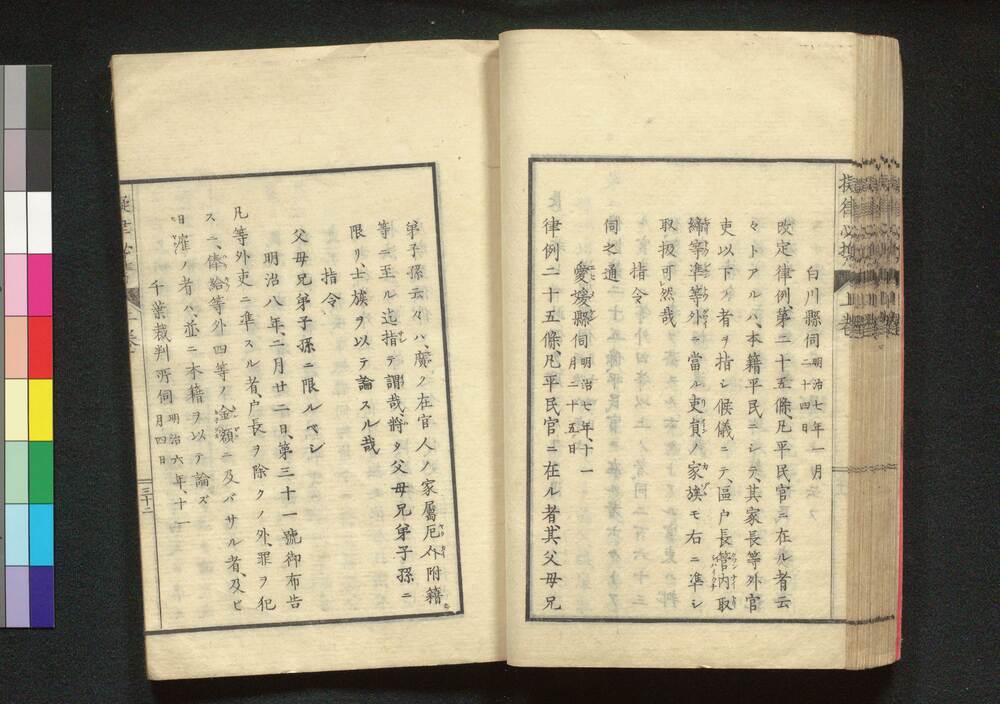 白川縣伺 明治七年一月二十四日
改定律例第二十五條、凡平民官ニ在ル者云
々トアルハ、本籍平民ニシテ、其家長等外官
吏以下ノ者ヲ指シ候儀ニテ、區戸長管内取
締等準等外ニ當ル吏員ノ家族モ右ニ準シ
取扱可然哉
指令
伺之通
愛媛縣伺 明治七年、十一月二十五日
律例二十五條、凡平民官ニ在ル者其父母兄
弟子孫云々ハ、廣ク在官人ノ家屬厄介附籍
等ニ至ル迄指テ謂哉、將タ父母兄弟子孫ニ
限リ、士族ヲ以テ論スル哉
指令
父母兄弟子孫ニ限ルベシ
明治八年、二月廿二日、第三十一號御布告
凡等外吏ニ準スル者、戸長ヲ除クノ外、罪ヲ犯
スニ、俸給等外四等ノ金額ニ及バサル者、及ヒ
日雇ノ者ハ、並ニ本籍ヲ以テ論ズ
千葉裁判所伺 明治六年、十一月四日
三十二